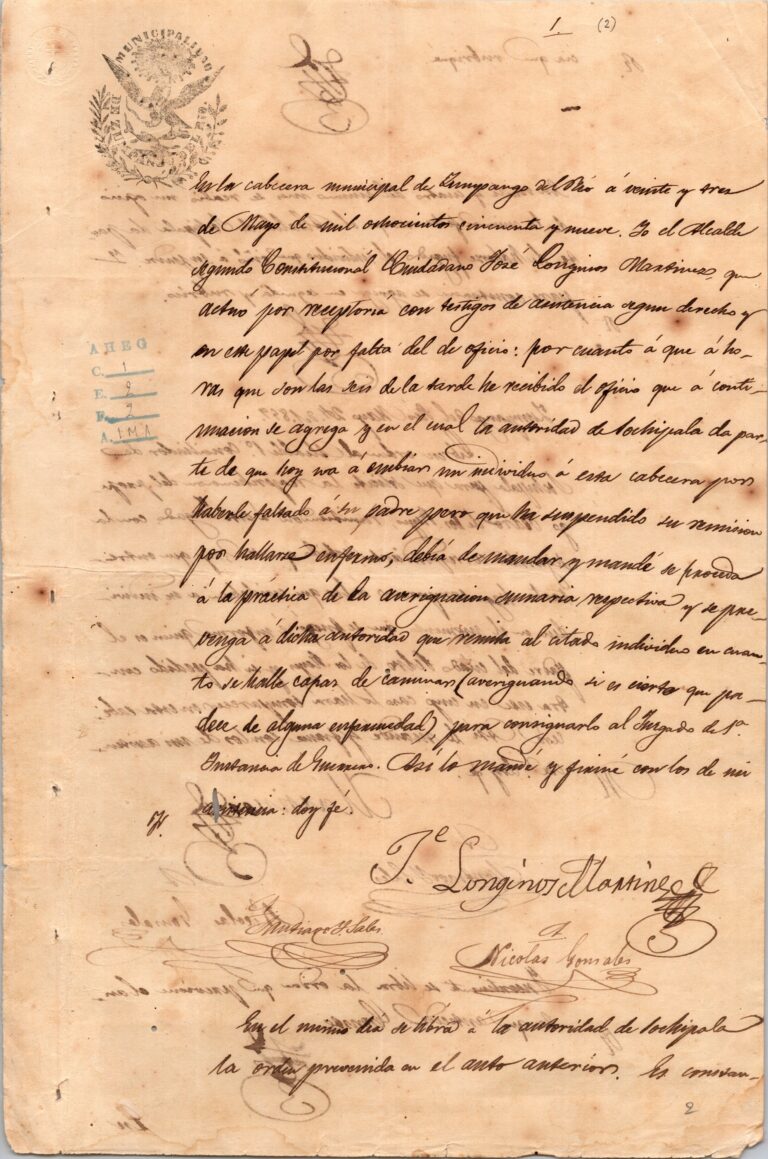 1. (2)
MUNICIPALIDAD
DE ZUMPANGO DEL RIO
En la cabecera municipal de Zumpango del Rio á veinte y tres
de Mayo de mil ochocientos cincuenta y nueve. Yo el Alcalde
segundo Constitucional Ciudadano José Longinos Martinez, que
actuó por receptoria con testigos de asistencia segun derecho y
en este papel por falta del de oficio: por cuanto á que á ho-
ras que son las seis de la tarde he recibido el oficio que á conti-
nuacion se agrega y en el cual la autoridad de Sochipala da par-
te de que hoy iva á embiar un individuo á esta cabecera por
haberle faltado á su padre pero que ha suspendido su remision
por hallarse enfermo, debia de mandar y mandé se proceda
á la práctica de la averiguacion sumaria respectiva y se pre-
venga á dicha autoridad que remita al citado individuo en cuan-
to se halle capas de caminar (averiguando si es cierto que pa-
dece de alguna enfermedad), para consignarlo al Jusgado de 1a.
Instancia de Guerrero. Asi lo mandé y firmé con los de mi
asistencia: doy fé.
AHEG
C. 1
E. 2
F. 2
A. 1MA
Je. Longinos Martinez
A.
Santiago Y. Sales
A.
Nicolas Gonsales
En el mismo dia se libra á la autoridad de Sochipala
la orden prevenida en el auto anterior. Es constan-
2